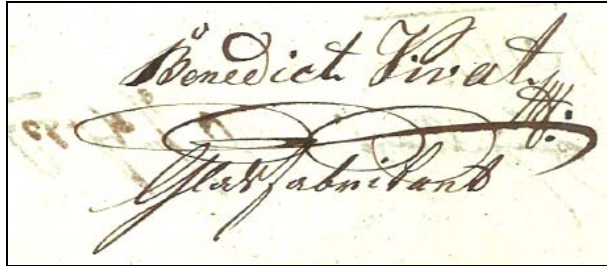 Benedict Vivat
Glasfabrikant